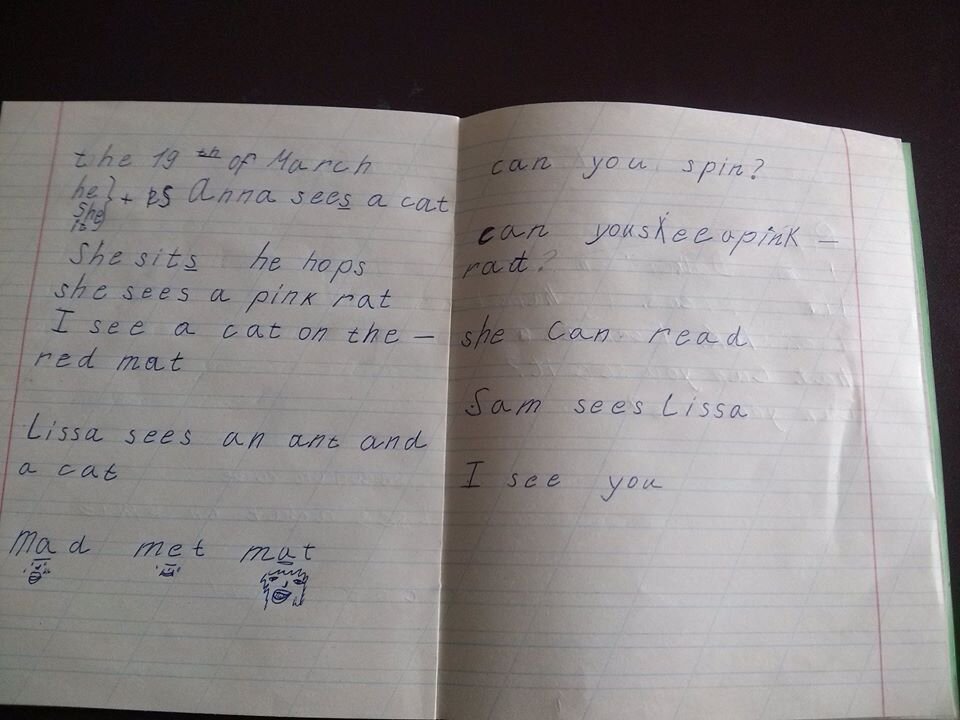 the 19th of March
he
she } + s Anna sees a cat
it
She sits he hops
she sees a pink rat
I see a cat on the –
red mat
Lissa sees an ant and
a cat
mad met mat
can you spin?
can you see a pink –
rat?
she can read
Sam sees Lissa
I see you